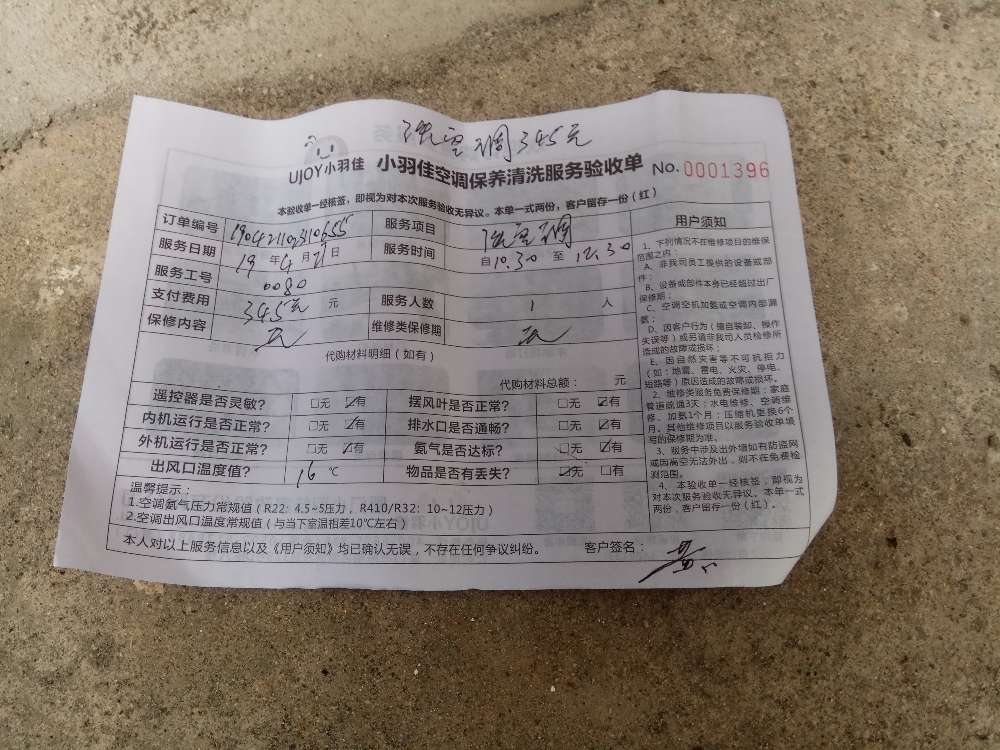 洗空调345元
UJOY小羽佳 小羽佳空调保养清洗服务验收单 No.0001396
本验收单一经核签，即视为对本次服务验收无异议。本单一式两份，客户留存一份（红）
订单编号 服务项目 洗空调
服务日期 19年4月21日 服务时间 自10.30至12.30
服务工号 0080
支付费用 345元 元 服务人数 1 人
保修内容 无 维修类保修期 无
代购材料明细（如有）
代购材料总额： 元
遥控器是否灵敏？ □无 ☑有 摆风叶是否正常？ □无 ☑有
内机运行是否正常？ □无 ☑有 排水口是否通畅？ □无 ☑有
外机运行是否正常？ □无 ☑有 氨气是否达标？ □无 ☑有
出风口温度值？ 16 ℃ 物品是否有丢失？ ☑无 □有
温馨提示：
1.空调氨气压力常规值（R22: 4.5~5压力，R410/R32: 10~12压力）
2.空调出风口温度常规值（与当下室温相差10℃左右）
本人对以上服务信息以及《用户须知》均已确认无误，不存在任何争议纠纷。 客户签名：
用户须知
1、下列情况不在维修项目的维保
范围之内
A、非我司员工提供的设备或部
件；
B、设备或部件本身已经超过出厂
保修期；
C、空调空机加氨或空调内部漏
氨；
D、因客户行为（擅自装卸、操作
失误等）或另请非我司人员检修所
造成的故障或损坏；
E、因自然灾害等不可抗拒力
（如：地震、雷电、火灾、停电、
短路等）原因造成的故障或损坏。
2、维修类服务免费保修期：家庭
管道疏通3天；水电维修、空调维
修、加氨1个月；压缩机更换6个
月。其他维修项目以服务验收单填
写的保修期为准。
3、服务中涉及出外墙如有防盗网
或因高空无法外出，则不在免费检
测范围。
4、本验收单一经核签，即视为
对本次服务验收无异议。本单一式
两份，客户留存一份（红）。